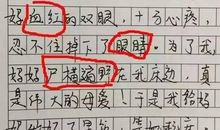 好血红的双眼，十分心疼，
忍不住掉下了眼睛。为了我，
好好尸横遍野在我床边，真
是伟大的母爱！于是我给好